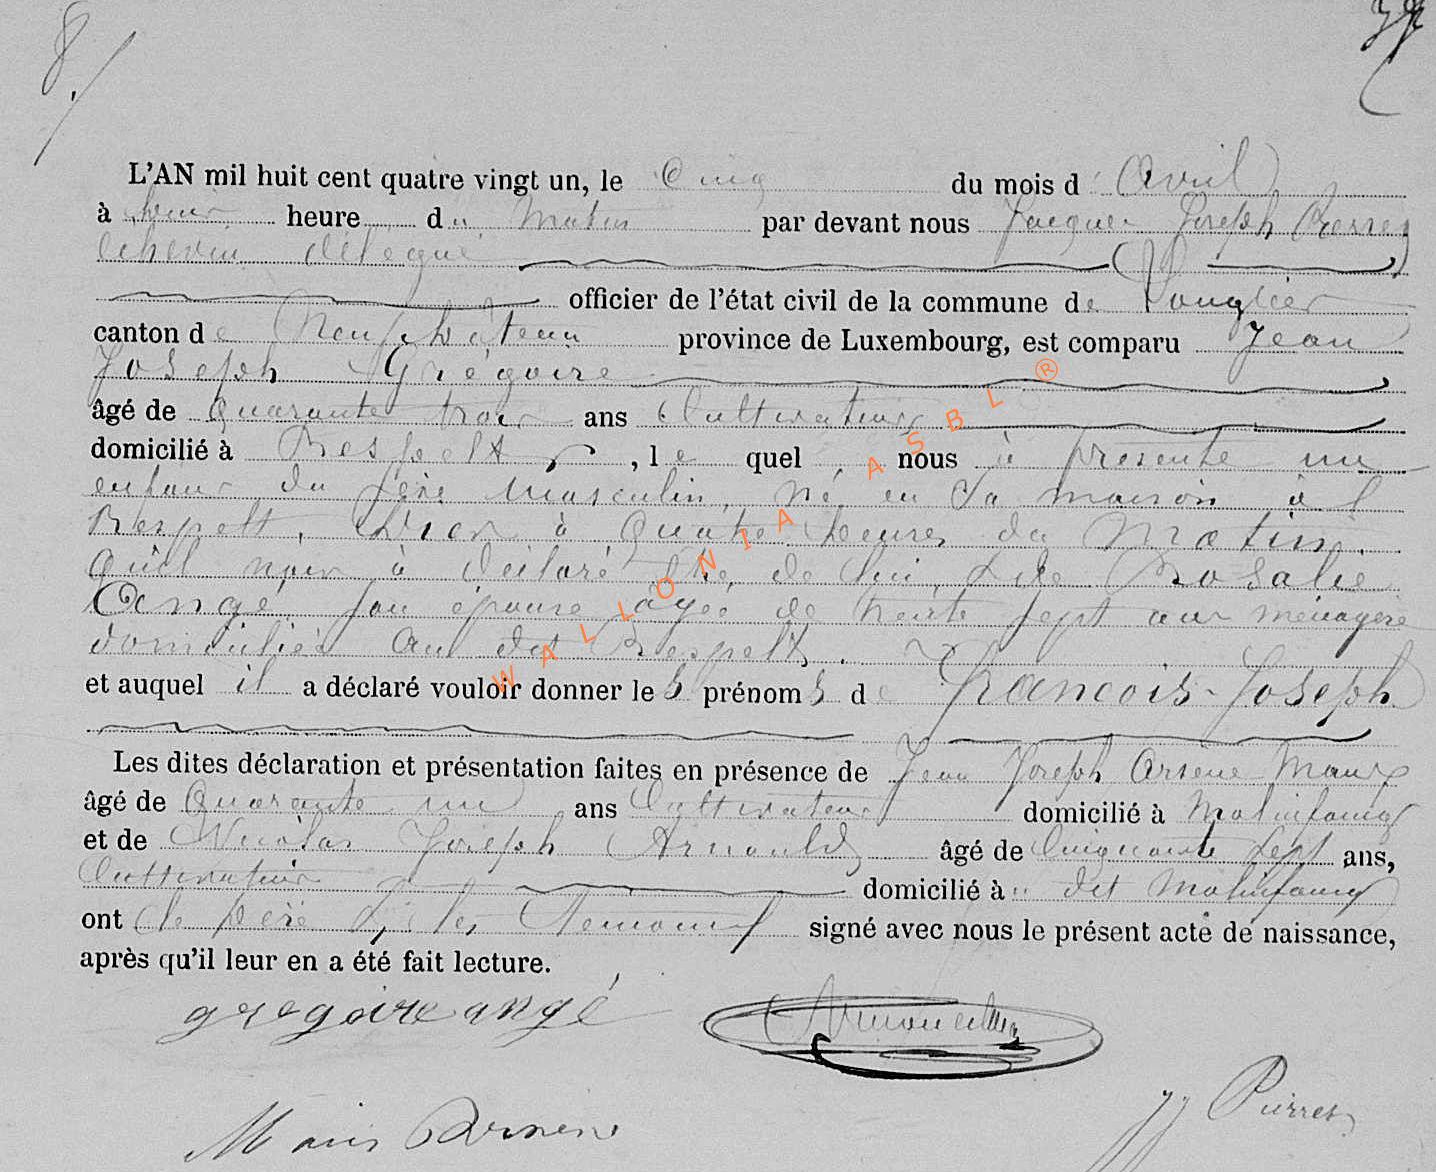 8
L'AN mil huit cent quatre vingt un, le Cinq du mois d' Avril
à heure du Matin par devant nous Jacques Joseph Pierres
échevin délégué
officier de l'état civil de la commune de Longlier
canton de Neufchâteau province de Luxembourg, est comparu Jean
Joseph Grégoire
âgé de quarante trois ans Cultivateur
domicilié à Respelt, le quel nous à présenté un
enfant du sexe Masculin, né en sa maison à
Respelt, hier à quatre heures du Matin.
qu'il nous à déclaré être de lui et de Rosalie
Angé son épouse âgée de trente sept ans ménagère
domiciliés au dit Respelt.
et auquel il a déclaré vouloir donner les prénoms de Francois-Joseph
Les dites déclaration et présentation faites en présence de Jean Joseph Arsène Maus
âgé de Quarante un ans Cultivateur domicilié à Molinfaing
et de Nicolas Joseph Arnould âgé de Cinquante sept ans,
Cultivateur domicilié à dit Molinfaing
ont le père et les témoins signé avec nous le présent acte de naissance,
après qu'il leur en a été fait lecture.
gregoire angé
JJ Pierres
WALLONIA ASBL ®